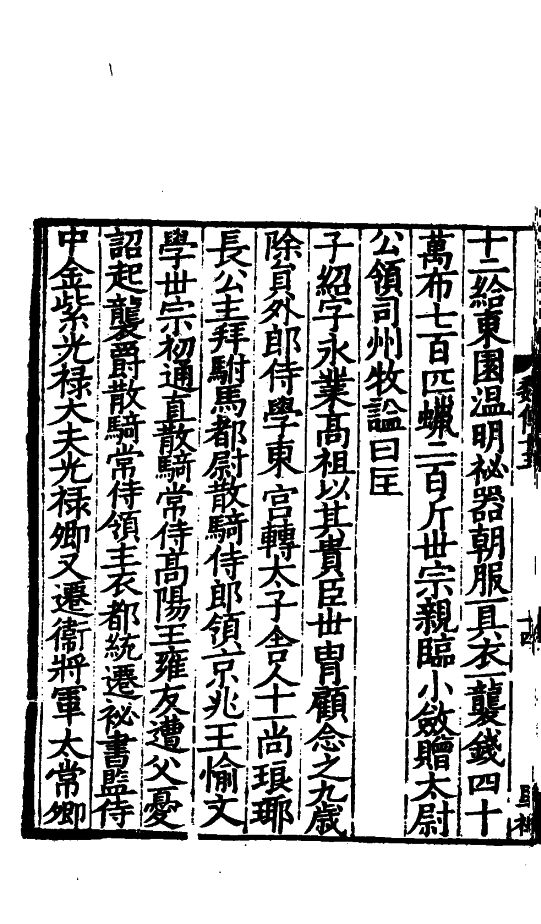 十二給東園温明祕器朝服一具衣一襲錢四十
萬布七百匹蠟二百斤世宗親臨小斂贈太尉
公領司州牧謚曰匡
子紹字永業髙祖以其貴臣世胄顧念之九歲
除員外郎侍學東宮轉太子舍人十一尚琅瑘
長公主拜駙馬都尉散騎侍郎領京兆王愉文
學世宗初通直散騎常侍髙陽王雍友遭父憂
詔起襲爵散騎常侍領主衣都統遷祕書監侍
中金紫光禄大夫光禄卿又遷衞將軍太常卿